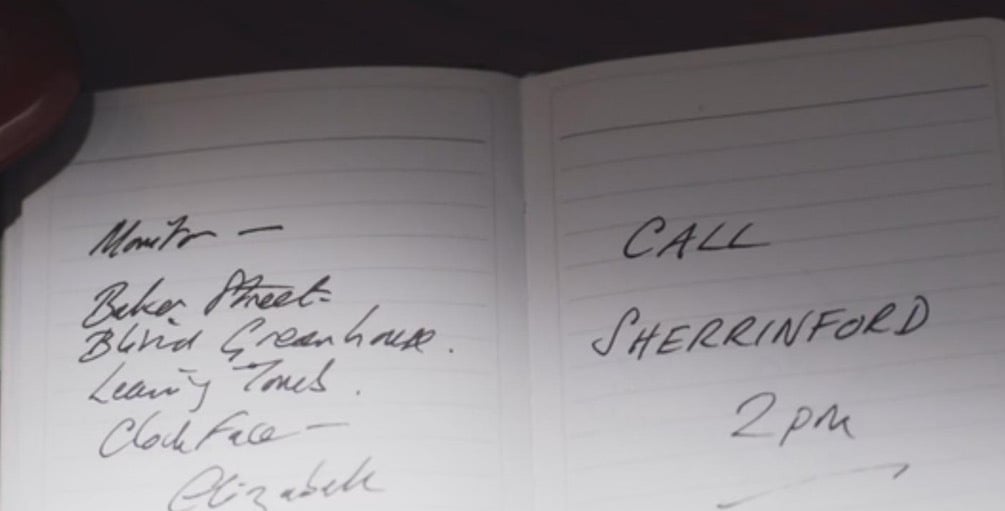 Monitor —
Baker Street.
Blind Greenhouse.
Leaning Tombs.
Clock Face —
Elizabeth
CALL
SHERRINFORD
2 pm